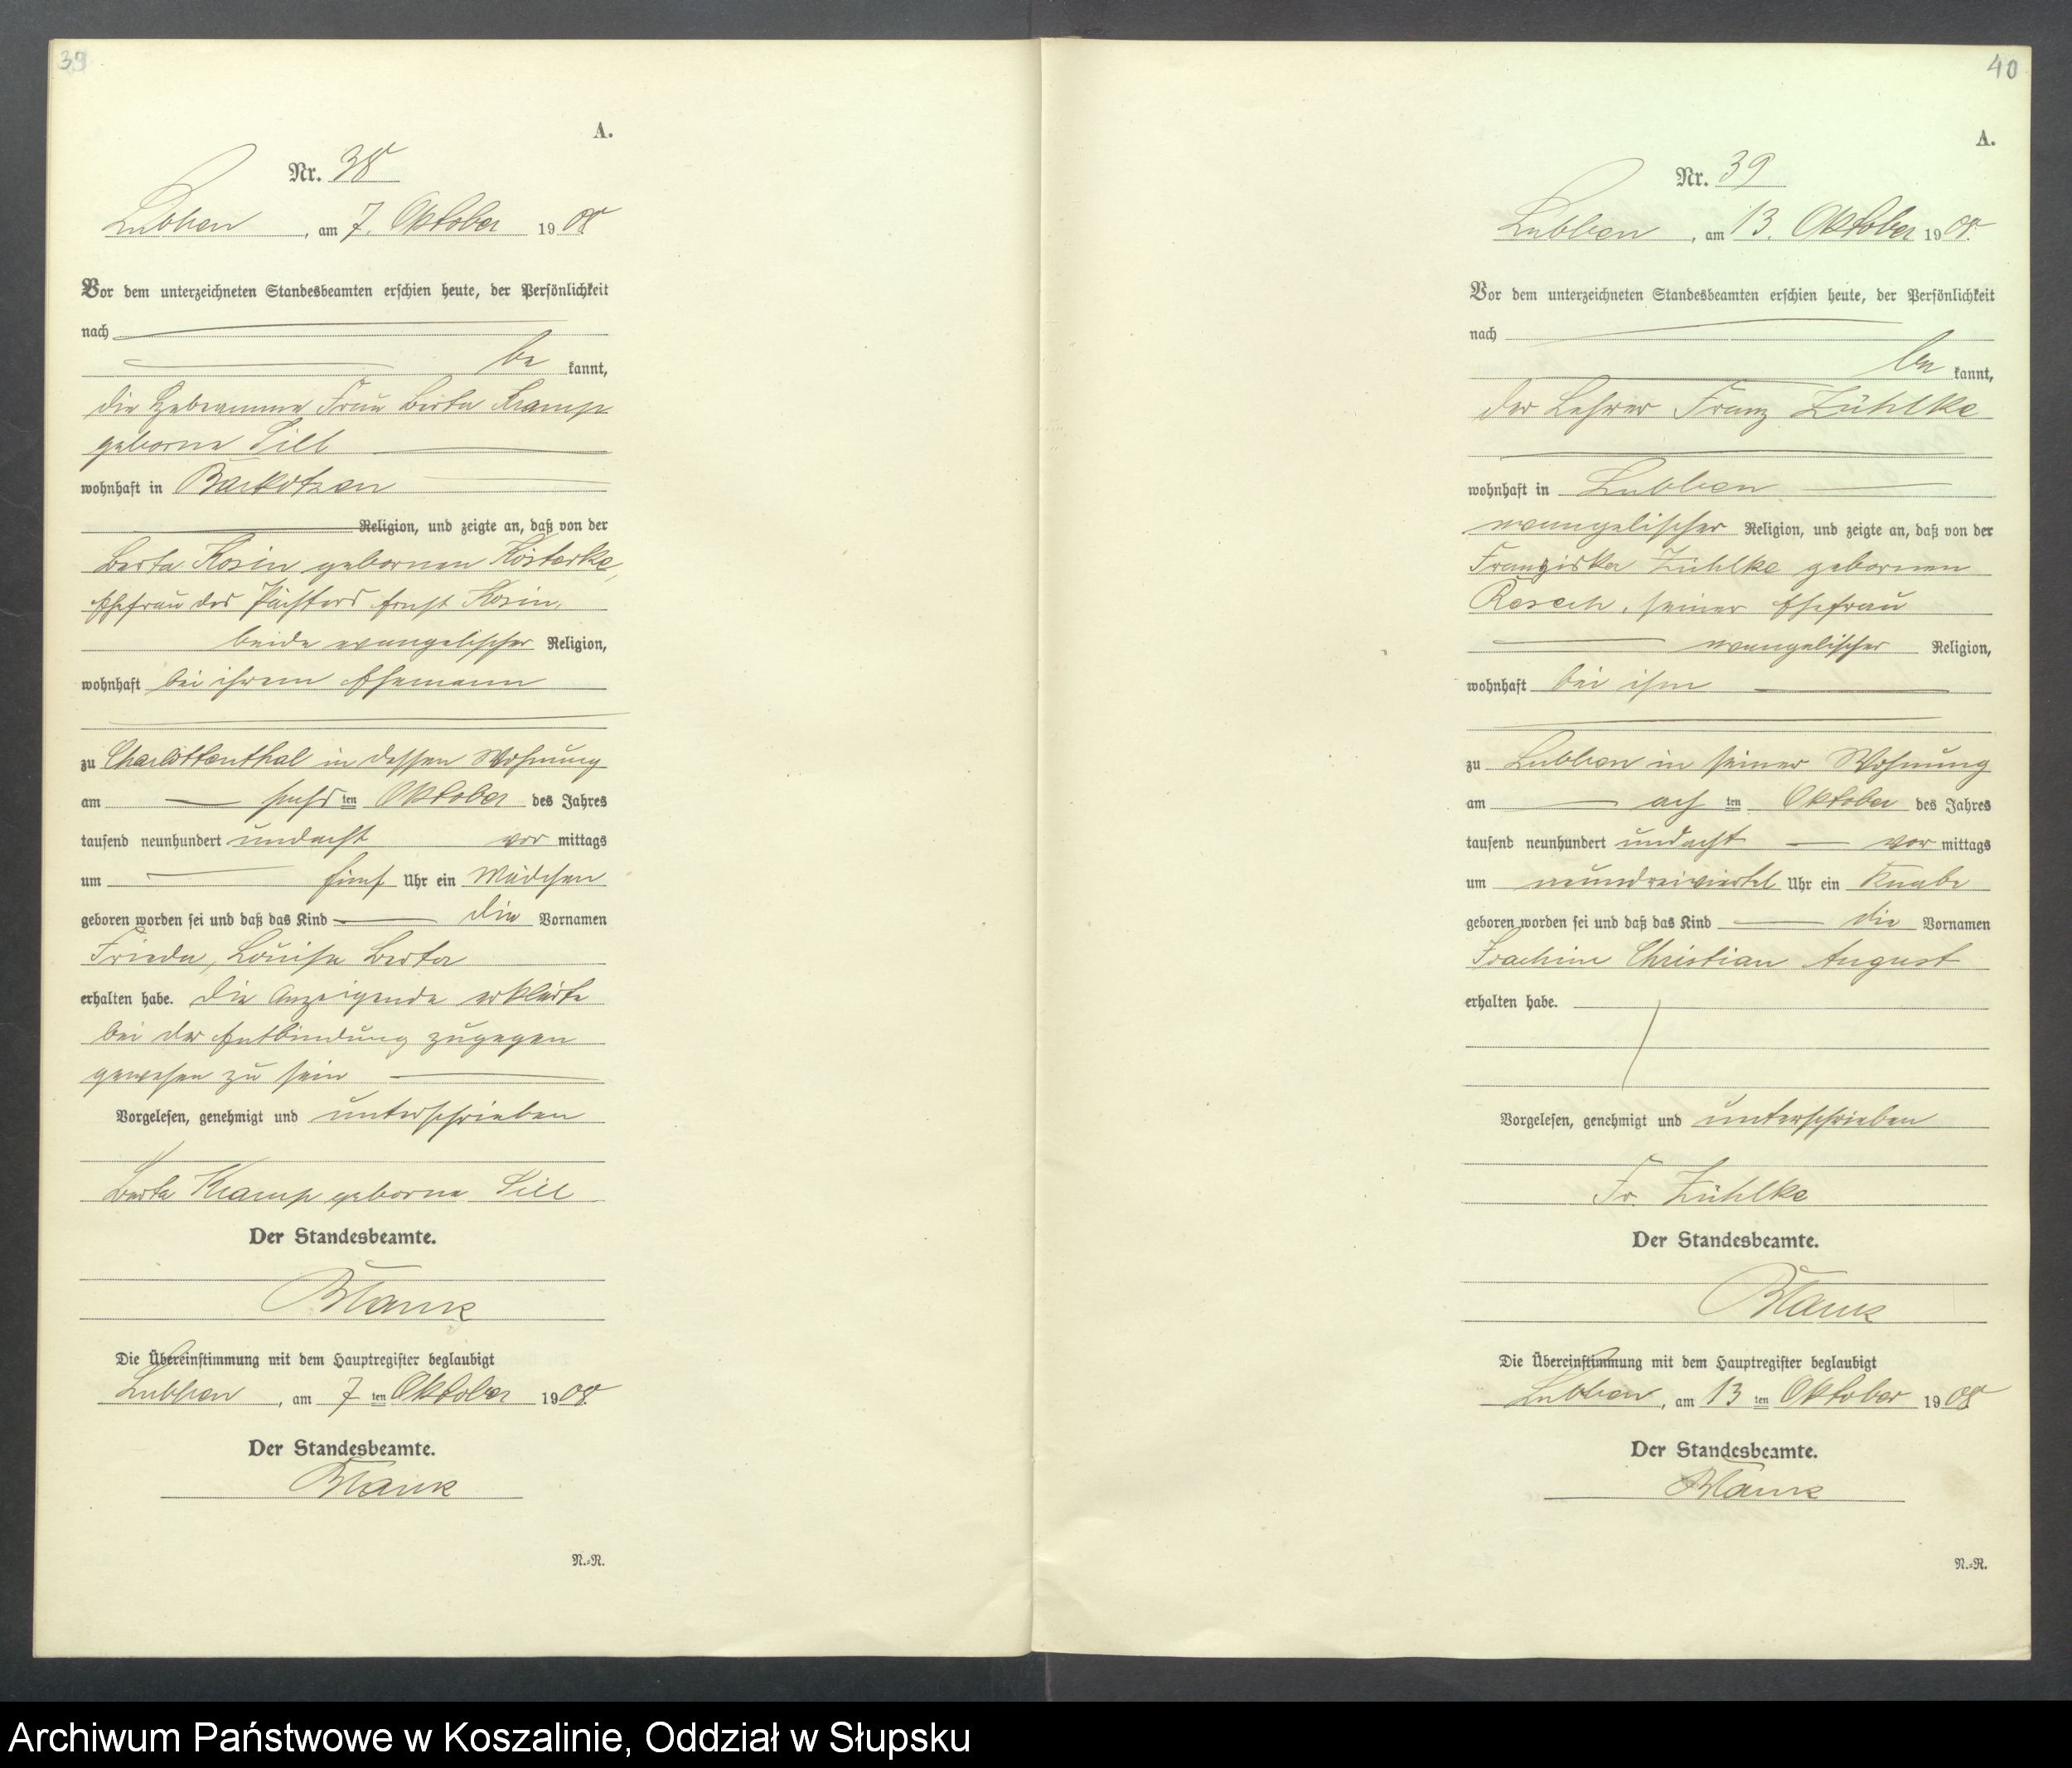 39
A.
Nr. 38
Lubben, am 7. Oktober 1908
Vor dem unterzeichneten Standesbeamten erschien heute, der Persönlichkeit
nach
be kannt,
die Hebamme Frau Berta Kramp
geborne Sill
wohnhaft in Barkotzen
Religion, und zeigte an, daß von der
Berta Kosin gebornen Kösterke,
Ehefrau des Pächters Ernst Kosin,
beide evangelischer Religion,
wohnhaft bei ihrem Ehemann
zu Charlottenthal in dessen Wohnung
am sechsten Oktober des Jahres
tausend neunhundert undacht vor mittags
um fünf Uhr ein Mädchen
geboren worden sei und daß das Kind die Vornamen
Frieda, Louise Berta
erhalten habe. Die Anzeigende erklärte
bei der Entbindung zugegen
gewesen zu sein
Vorgelesen, genehmigt und unterschrieben
Berta Kramp geborne Sill
Der Standesbeamte.
Blank
Die Übereinstimmung mit dem Hauptregister beglaubigt
Lubben, am 7 ten Oktober 1908.
Der Standesbeamte.
Blank
N.=R.
40
A.
Nr. 39
Lubben, am 13. Oktober 1908.
Vor dem unterzeichneten Standesbeamten erschien heute, der Persönlichkeit
nach
be kannt,
der Lehrer Franz Zühlke
wohnhaft in Lubben
evangelischer Religion, und zeigte an, daß von der
Franziska Zühlke gebornen
Resech, seiner Ehefrau
evangelischer Religion,
wohnhaft bei ihm
zu Lubben in seiner Wohnung
am ach ten Oktober des Jahres
tausend neunhundert undacht vor mittags
um neundreiviertel Uhr ein Knabe
geboren worden sei und daß das Kind die Vornamen
Joachim Christian August
erhalten habe.
Vorgelesen, genehmigt und unterschrieben
Fr. Zühlke
Der Standesbeamte.
Blank
Die Übereinstimmung mit dem Hauptregister beglaubigt
Lubben, am 13 ten Oktober 1908
Der Standesbeamte.
Blank
N.=R.
Archiwum Państwowe w Koszalinie, Oddział w Słupsku